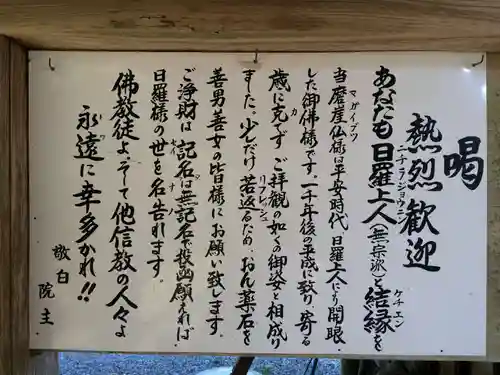 喝
熱烈歓迎
あなたも日羅上人(無宗派)と結縁を
ニチラジョウニン
ケチエン
当磨崖仏様は平安時代、日羅上人により開眼
マガイブツ
した御佛様です。一千年後の平成に致り、寄る
歳に克てず、ご拝観の如くの御姿と相成り
カ
ました。少しだけ若返るため、おん薬石を
リフレッシュ
善男善女の皆様にお願い致します。
ご浄財は記名は無記名で投函願えれば
日羅様の世を名告れます。
佛教徒よ、そして他信教の人々よ
永遠に幸多かれ!!
敬白
院主